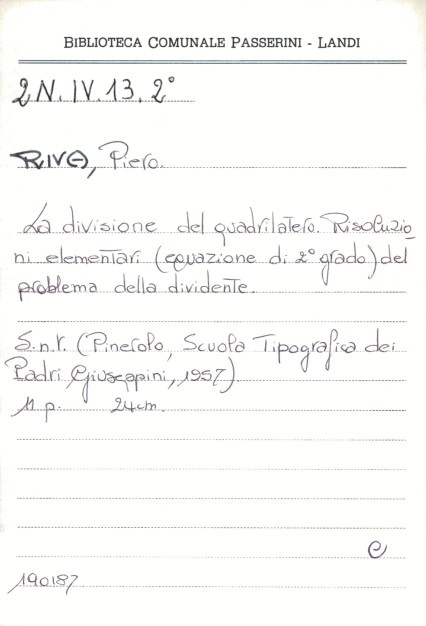 BIBLIOTECA COMUNALE PASSERINI - LANDI
2N.IV.13.2°
RIVA, Piero.
La divisione del quadrilatero. Risoluzio
ni elementari (equazione di 2° grado) del
problema della dividente.
S.n.t. (Pinerolo, Scuola Tipografica dei
Padri Giuseppini, 1957)
11 p. 24cm.
e
190187